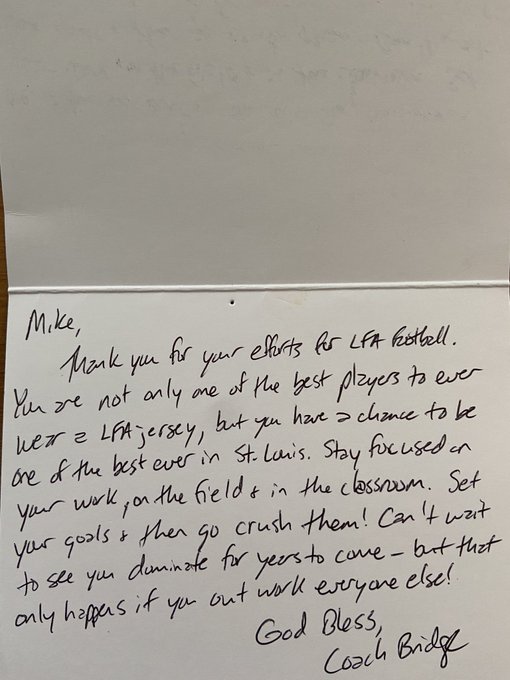 Mike,
Thank you for your efforts for LFA football.
You are not only one of the best players to ever
wear a LFA jersey, but you have a chance to be
one of the best ever in St. Louis. Stay focused on
your work, on the field & in the classroom. Set
your goals & then go crush them! Can't wait
to see you dominate for years to come – but that
only happens if you out work everyone else!
God Bless,
Coach Bridge